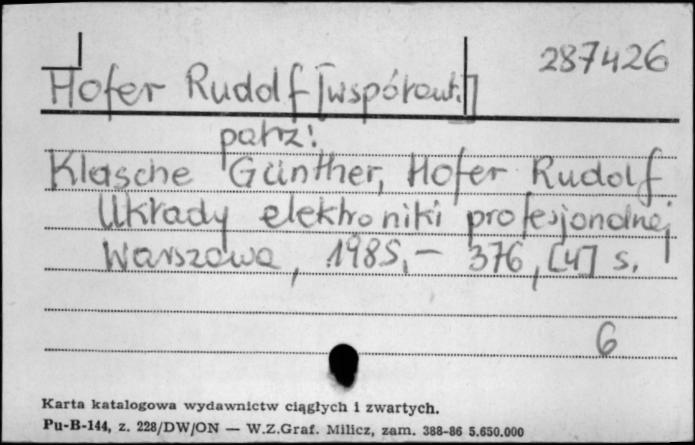 287426
Hofer Rudolf [współaut.]
patrz:
Klasche Günther, Hofer Rudolf
Układy elektroniki profesjonalnej
Warszawa, 1985, – 376, [4] s.
6
Karta katalogowa wydawnictw ciągłych i zwartych.
Pu-B-144, z. 228/DW/ON — W.Z.Graf. Milicz, zam. 388-86 5.650.000